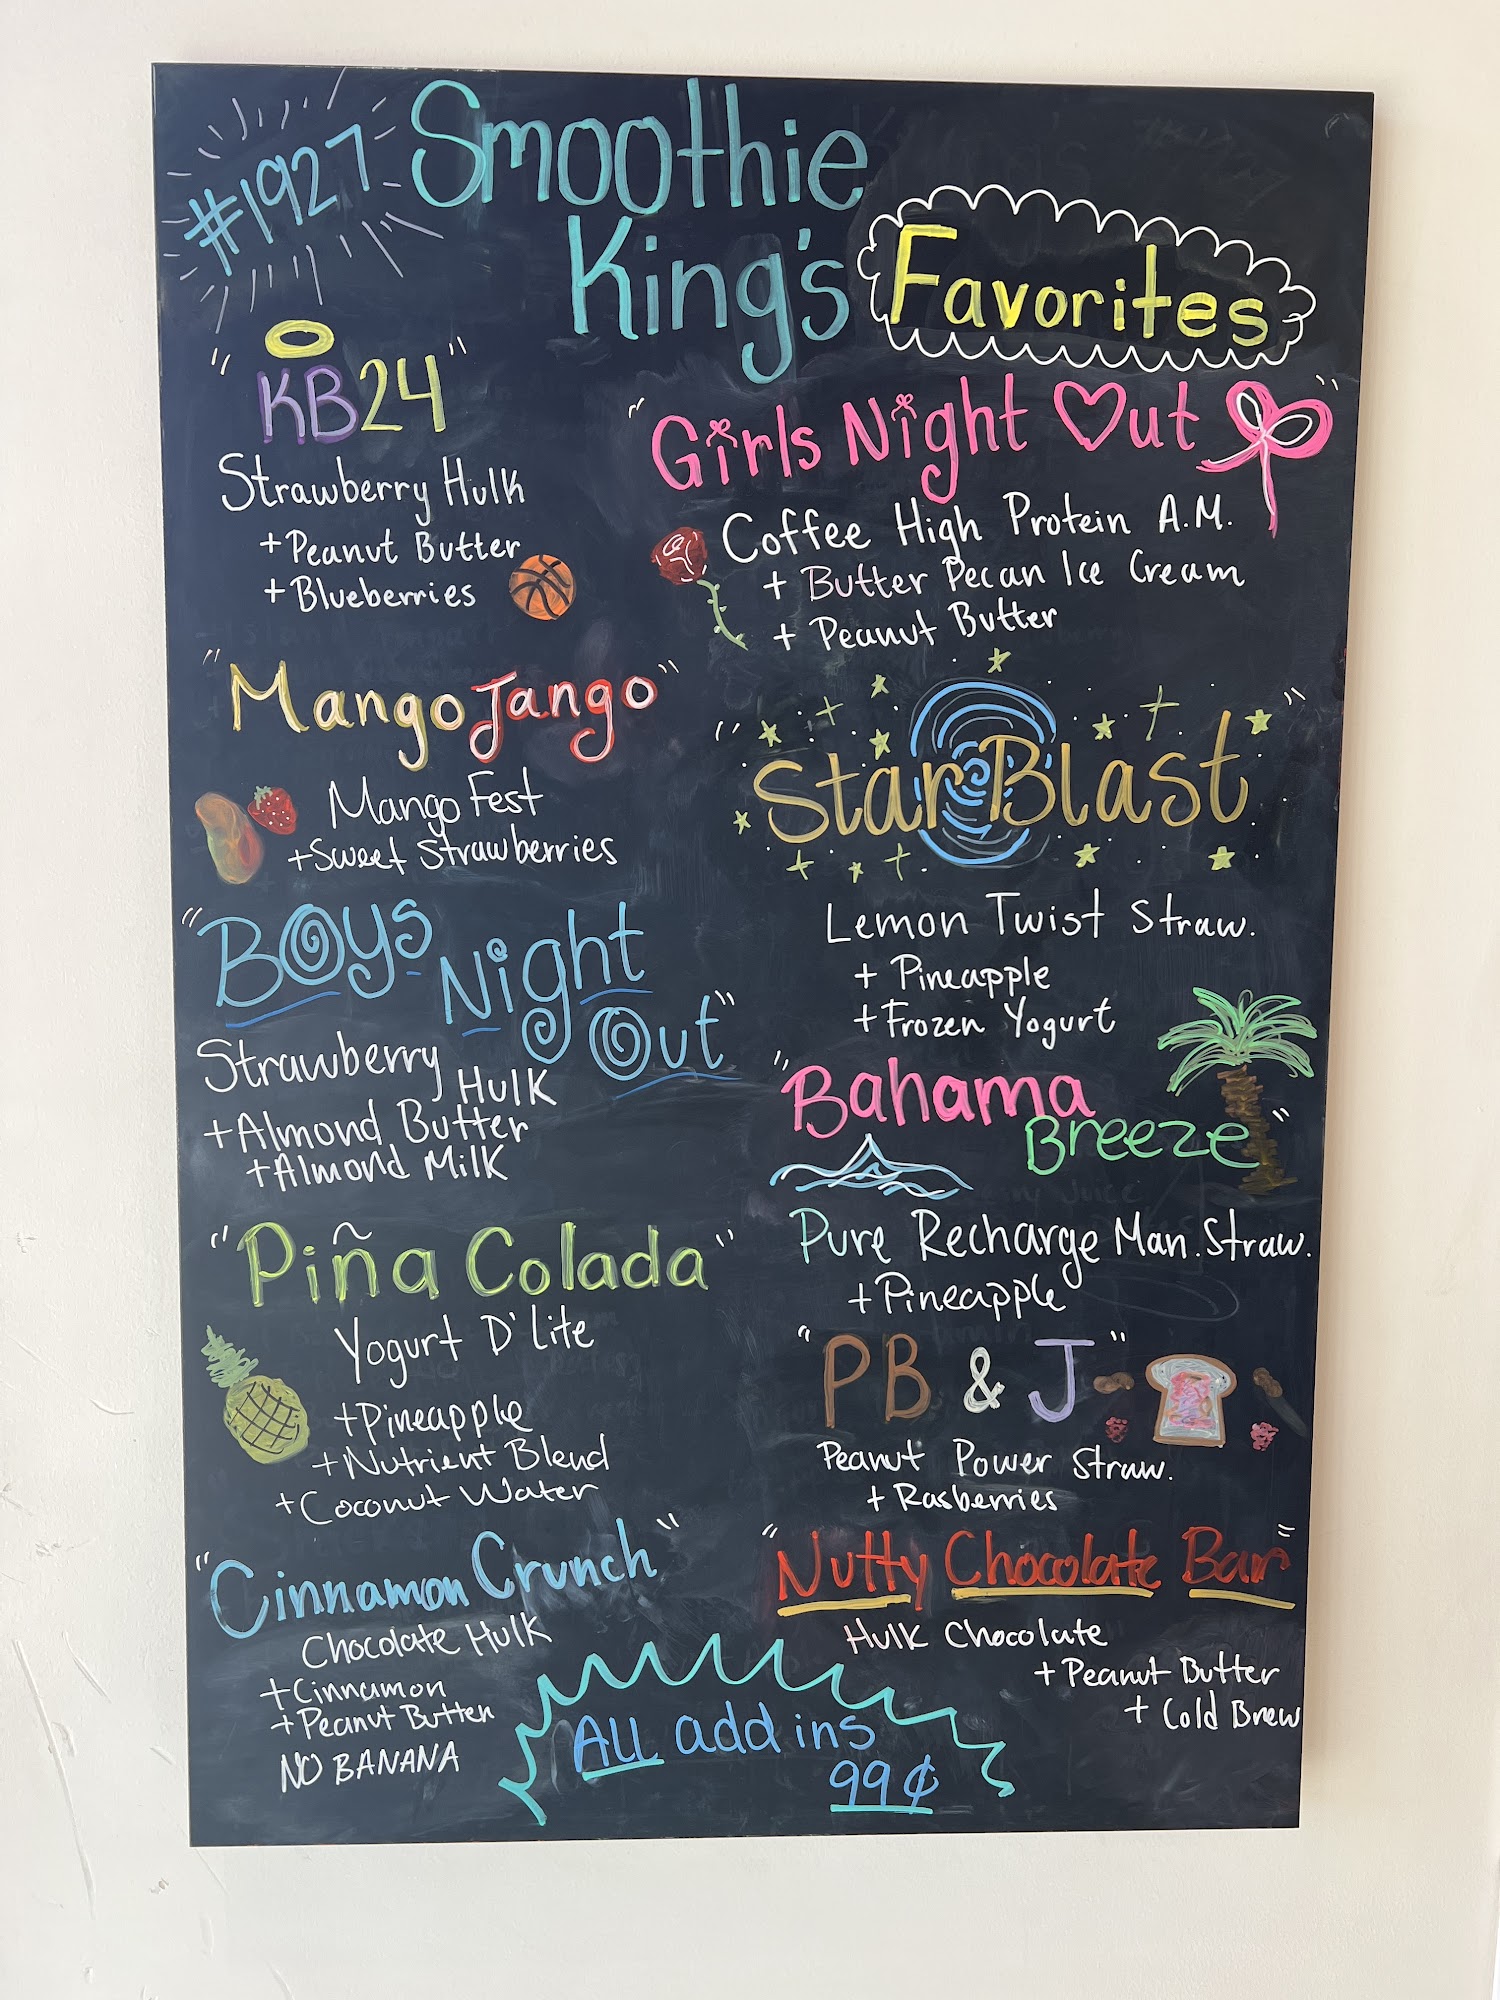 #1927
Smoothie
King's
Favorites
"KB24"
Strawberry Hulk
+ Peanut Butter
+ Blueberries
"Girls Night Out"
Coffee High Protein A.M.
+ Butter Pecan Ice Cream
+ Peanut Butter
"Mango Jango"
Mango Fest
+ Sweet Strawberries
"StarBlast"
Lemon Twist Straw.
+ Pineapple
+ Frozen Yogurt
"Boys
Night
Out"
Strawberry
Hulk
+ Almond Butter
+ Almond Milk
"Bahama
Breeze"
Pure Recharge Man. Straw.
+ Pineapple
"Piña Colada"
Yogurt D'lite
+ Pineapple
+ Nutrient Blend
+ Coconut Water
"PB & J"
Peanut Power Straw.
+ Rasberries
"Cinnamon Crunch"
Chocolate Hulk
+ Cinnamon
+ Peanut Butter
NO BANANA
"Nutty Chocolate Bar"
Hulk Chocolate
+ Peanut Butter
+ Cold Brew
ALL add ins
99¢